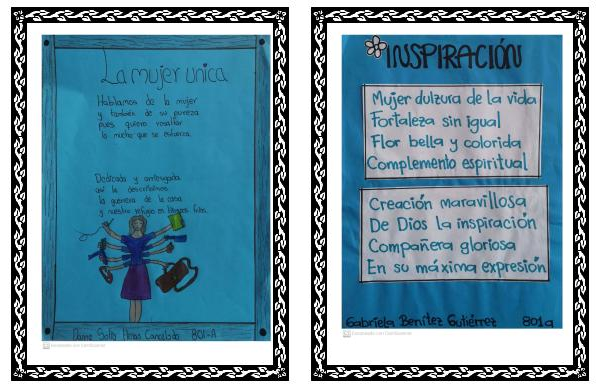 La mujer unica
Hablamos de la mujer
y también de su pureza
pues quiero resaltar
lo mucho que se esfuerza.
Dedicada y arriesgada
así la describimos
la guerrera de la casa
y nuestro refugio en tiempos fríos.
801-A
INSPIRACIÓN
Mujer dulzura de la vida
Fortaleza sin igual
Flor bella y colorida
Complemento espiritual
Creación maravillosa
De Dios la inspiración
Compañera gloriosa
En su máxima expresión
Gabriela Benítez Gutiérrez 801a